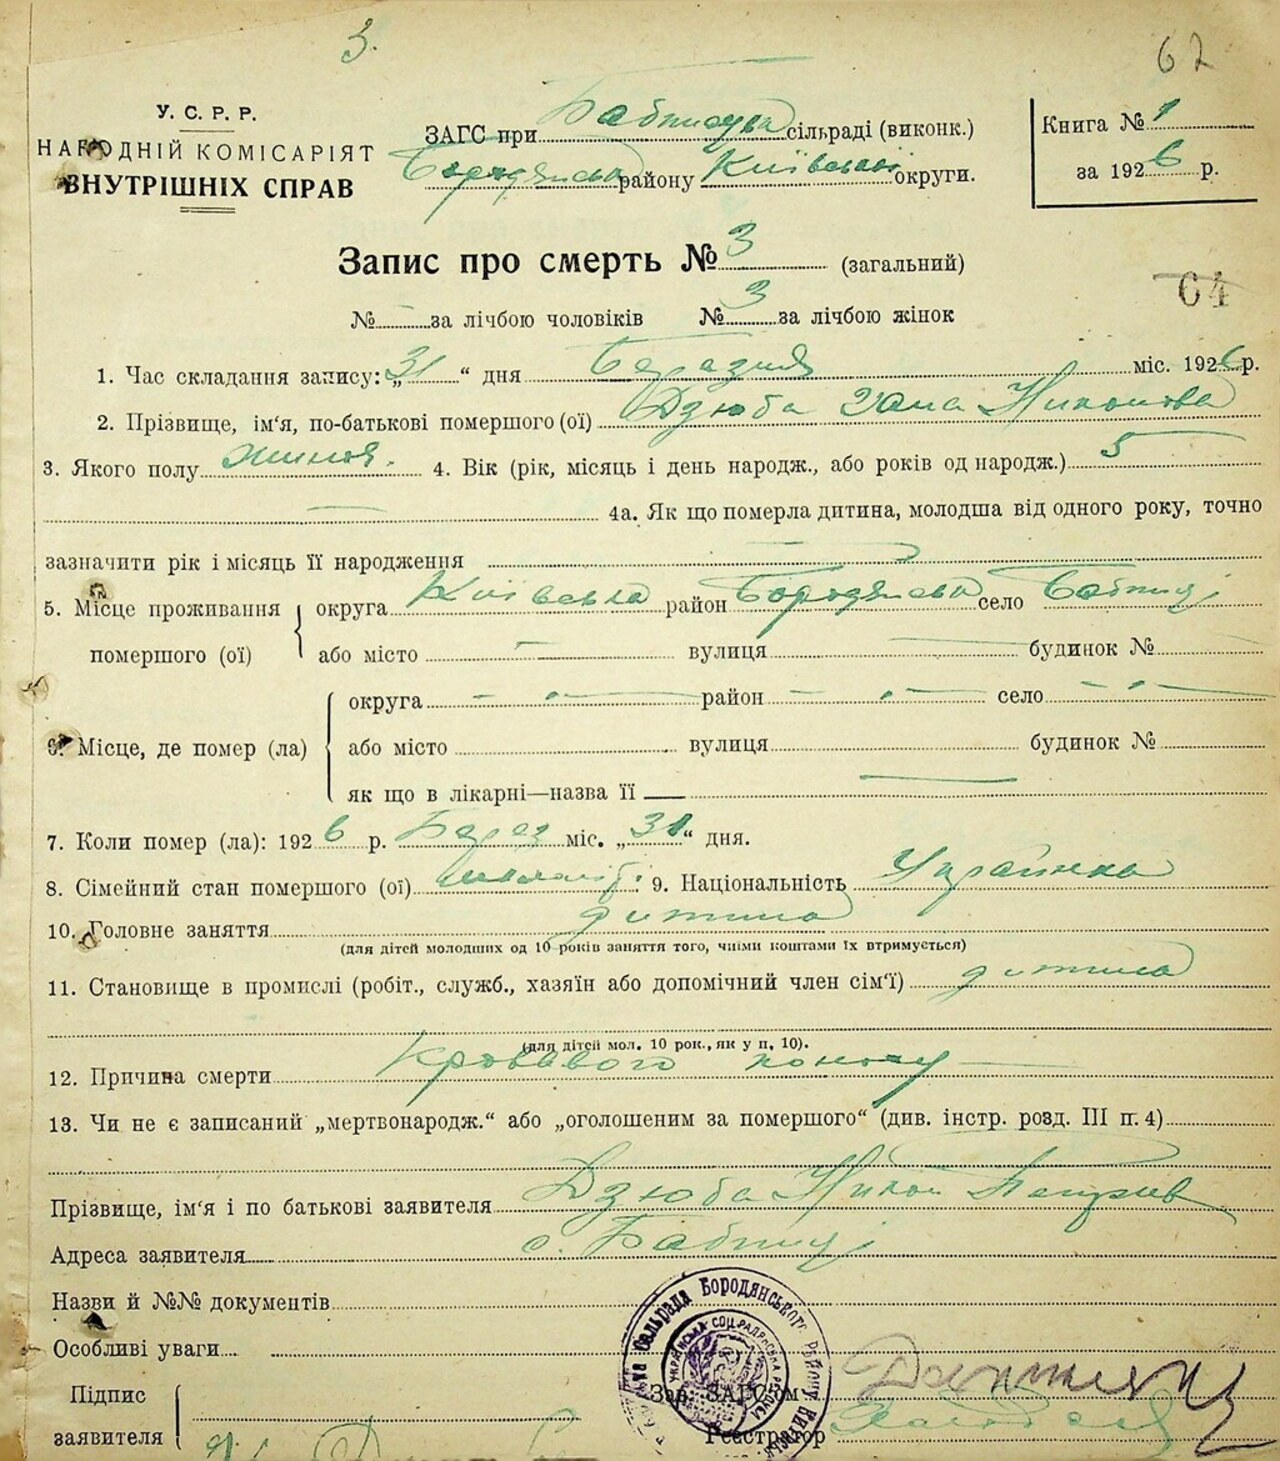 3.
62
У. С. Р. Р.
НАРОДНІЙ КОМІСАРІЯТ
ВНУТРІШНІХ СПРАВ
ЗАГС при сільраді (виконк.)
району Київської округи.
Книга № 1
за 1926 р.
Запис про смерть № 3 (загальний)
64
№ – за лічбою чоловіків № 3 за лічбою жінок
1. Час складання запису: „31“ дня Березня міс. 1926 р.
2. Прізвище, ім‘я, по-батькові помершого (ої) Дзюба
3. Якого полу 4. Вік (рік, місяць і день народж., або років од народж.) 5
— 4а. Як що померла дитина, молодша від одного року, точно
зазначити рік і місяць її народження —
5. Місце проживання помершого (ої) округа Київська район Бородянськ село Бабинці
або місто — вулиця — будинок №
6. Місце, де помер (ла) округа – „ – район – „ – село – „ –
або місто вулиця будинок №
як що в лікарні—назва її —
7. Коли помер (ла): 1926 р. Берез міс. „31“ дня.
8. Сімейний стан помершого (ої) 9. Національність Українка
10. Головне заняття дитина
(для дітей молодших од 10 років заняття того, чиїми коштами їх втримується)
11. Становище в промислі (робіт., служб., хазяїн або допомічний член сім‘ї) дитина
(для дітей мол. 10 рок., як у п. 10).
12. Причина смерти Кровавого поносу
13. Чи не є записаний „мертвонародж.“ або „оголошеним за помершого“ (див. інстр. розд. III п. 4)
Прізвище, ім‘я і по батькові заявителя Дзюба Никон
Адреса заявителя с. Бабинці
Назви й №№ документів
Особливі уваги
Підпис
заявителя
Зав. ЗАГС‘ом
Реєстратор
Сельрада Бородянського Району
УКРАЇНСЬКА СОЦ. РАДЯНСЬКА